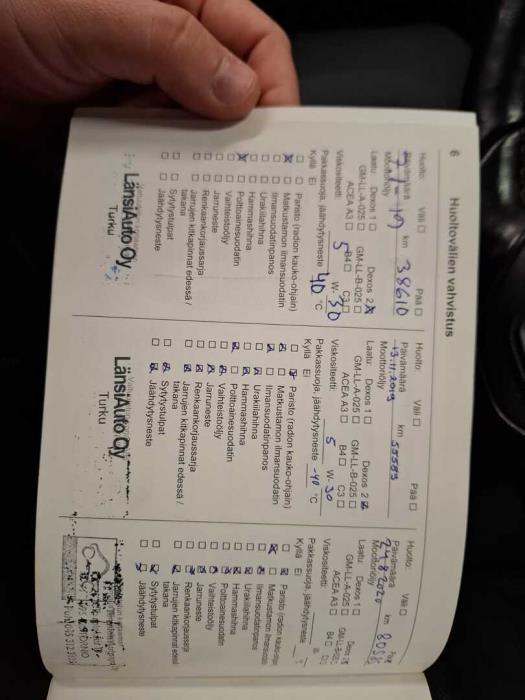 6
Huoltovälien vahvistus
Huolto: Väli ☐ Pää ☐
Päivämäärä km 38610
Moottoriöljy
Laatu: Dexos 1 ☐ Dexos 2 ☒
GM-LL-A-025 ☐ GM-LL-B-025 ☐
ACEA A3 ☐ B4 ☐ C3 ☐
Viskositeetti 5 W- 30
Pakkassuoja, jäähdytysneste 40 °C
Kyllä Ei
Paristo (radion kauko-ohjain)
Matkustamon ilmansuodatin
Ilmansuodatinpanos
Urakiilahihna
Hammashihna
Polttoainesuodatin
Vaihteistoöljy
Jarruneste
Renkaankorjaussarja
Jarrujen kitkapinnat edessä /
takana
Sytytystulpat
Jäähdytysneste
LänsiAuto Oy
Turku
Huolto: Väli ☐ Pää ☐
Päivämäärä km
13.11.2019
Moottoriöljy
Laatu: Dexos 1 ☐ Dexos 2 ☒
GM-LL-A-025 ☐ GM-LL-B-025 ☐
ACEA A3 ☐ B4 ☐ C3 ☐
Viskositeetti 5 W- 30
Pakkassuoja, jäähdytysneste -40 °C
Kyllä Ei
Paristo (radion kauko-ohjain)
Matkustamon ilmansuodatin
Ilmansuodatinpanos
Urakiilahihna
Hammashihna
Polttoainesuodatin
Vaihteistoöljy
Jarruneste
Renkaankorjaussarja
Jarrujen kitkapinnat edessä /
takana
Sytytystulpat
Jäähdytysneste
LänsiAuto Oy
Turku
Huolto: Väli ☐ Pää
Päivämäärä km
24.8.2020
Moottoriöljy
Laatu: Dexos 1 ☐ Dexos
GM-LL-A-025 ☐
ACEA A3 ☐ B4 ☐
Viskositeetti
Pakkassuoja, jäähdytysneste
Kyllä Ei
Paristo (radion
Matkustamon ilmansuodatin
Ilmansuodatinpanos
Urakiilahihna
Hammashihna
Polttoainesuodatin
Vaihteistoöljy
Jarruneste
Renkaankorjaussarja
Jarrujen kitkapinnat
takana
Sytytystulpat
Jäähdytysneste